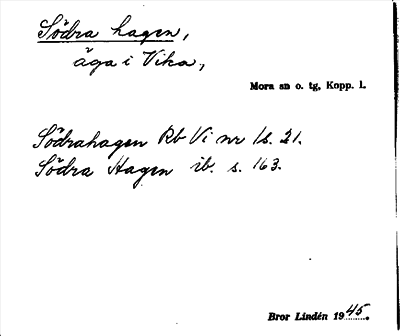 Södra hagen,
äga i Vika,
Mora sn o. tg, Kopp. l.
Södrahagen Rb Vi nr 1s. 21.
Södra Hagen ib. s. 163.
Bror Lindén 1945.